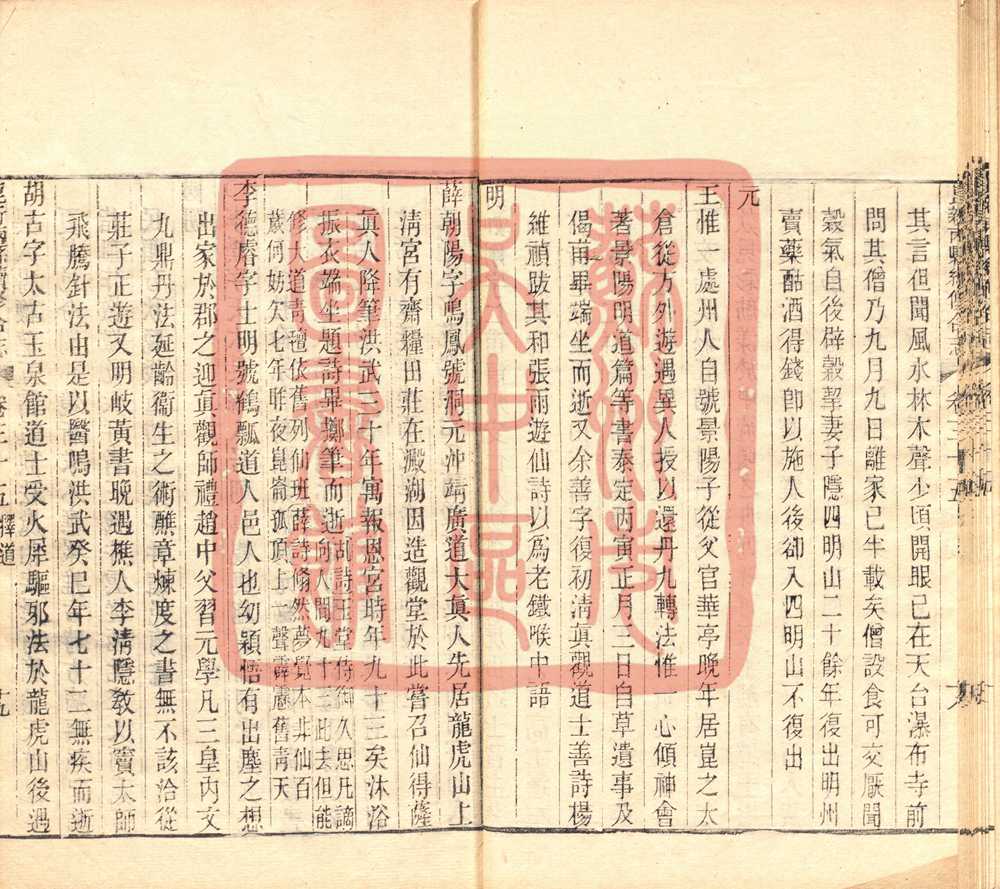 其言但聞風水林木聲少頃開眼已在天台瀑布寺前
問其僧乃九月九日離家已半載矣僧設食可交厭聞
穀氣自後辟穀挈妻子隱四明山二十餘年復出明州
賣藥酤酒得錢卽以施人後卻入四明山不復出
元
王惟一處州人自號景陽子從父官華亭晚年居崑之太
倉從方外遊遇異人授以還丹九轉法惟一心傾神會
著景陽明道篇等書泰定丙寅正月三日自草遺事及
偈甫畢端坐而逝又余善字復初清真觀道士善詩楊
維禎跋其和張雨遊仙詩以爲老鐵喉中語
明
薛朝陽字鳴鳳號洞元沖靖廣道大眞人先居龍虎山上
清宮有齋糧田莊在澱湖因造觀堂於此嘗召仙得薩
眞人降筆洪武三十年寓報恩宮時年九十三矣沐浴
振衣端坐題詩畢擲筆而逝
胡詩玉堂侍御久思凡謫向人間九十三此去但能
修大道靑壇依舊列仙班薛詩翛然夢覺本非仙百
歲何妨欠七年昨夜崑崙孤頂上一聲霹靂舊靑天
李德睿字士明號鶴瓢道人邑人也幼穎悟有出塵之想
出家於郡之迎眞觀師禮趙中父習元學凡三皇內文
九鼎丹法延齡衞生之術醮章煉度之書無不該洽從
莊子正遊又明岐黃書晚遇樵人李清隱敎以竇太師
飛騰針法由是以醫鳴洪武癸巳年七十二無疾而逝
胡古字太古玉泉館道士受火犀驅邪法於龍虎山後遇
卷三十五 釋道
十九